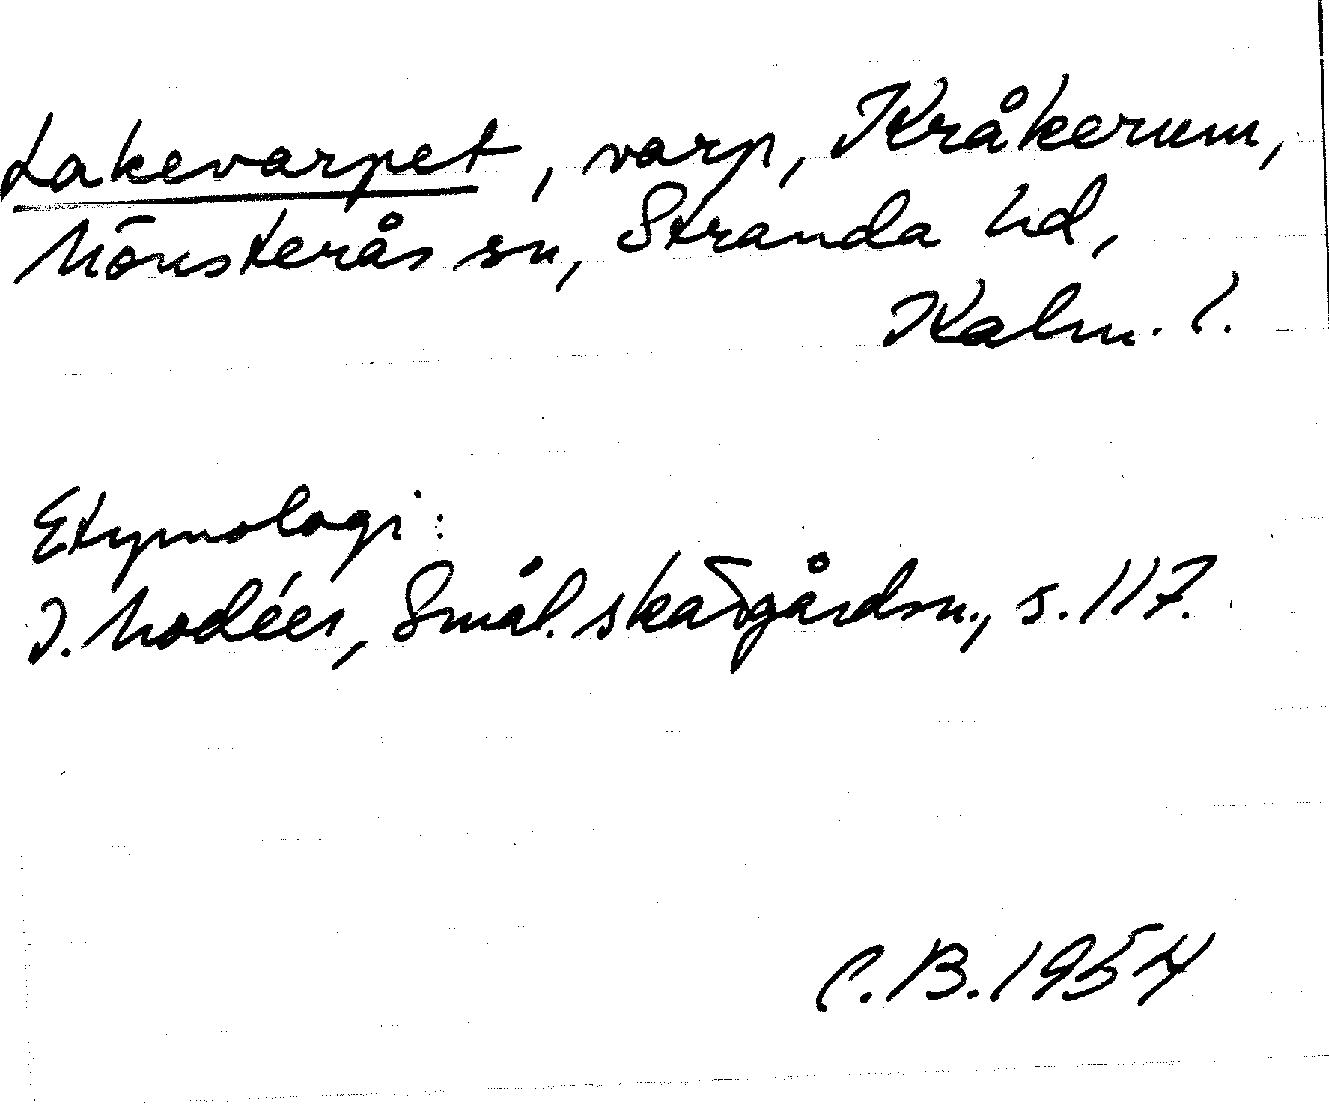 Lakevarpet, varp, Kråkerum,
Mönsterås sn, Stranda hd,
Kalm. l.
Etymologi:
I. Modéer, Smål. skärgårdsn., s. 117.
C.B. 1954